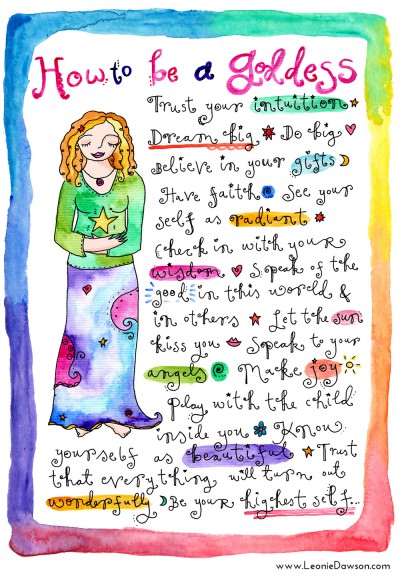 How to be a goddess
Trust your intuition
Dream big Do big
Believe in your gifts
Have faith See your
self as radiant
Check in with your
wisdom Speak of the
good in this world &
in others Let the sun
kiss you Speak to your
angels Make joy
Play with the child
inside you Know
yourself as beautiful Trust
that everything will turn out
wonderfully Be your highest self...
www.LeonieDawson.com